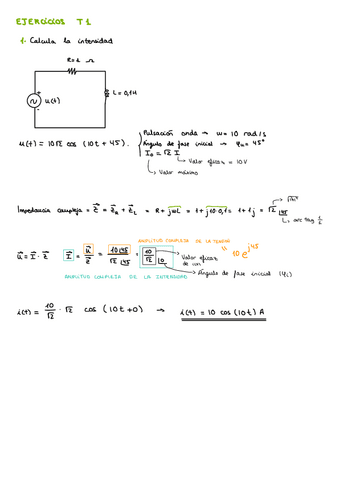 EJERCICIOS T1
1. Calcula la intensidad
R=1 Ω
L=0,1H
u(t)
u(t) = 10√2 cos (10t + 45).
Pulsación onda → ω= 10 rad/s
Ángulo de fase inicial → φu= 45°
I₀ = √2 I
Valor eficaz = 10V
Valor máximo
Impedancia compleja = Z = Z_R + Z_L = R + jωL = 1 + j10·0,1 = 1 + 1j = √2 |45
arc tag 1/1
AMPLITUD COMPLEJA DE LA TENSIÓN
u = I · Z I = u/Z = 10|45 / √2|45 = 10/√2 |0
Valor eficaz
10 e^j45
Ángulo de fase inicial (φi)
AMPLITUD COMPLEJA DE LA INTENSIDAD
i(t) = 10/√2 · √2 cos (10t+0) → i(t) = 10 cos (10t) A